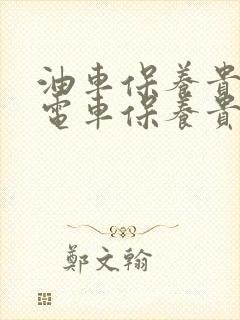 油車保養貴
電車保養貴
鄭文翰